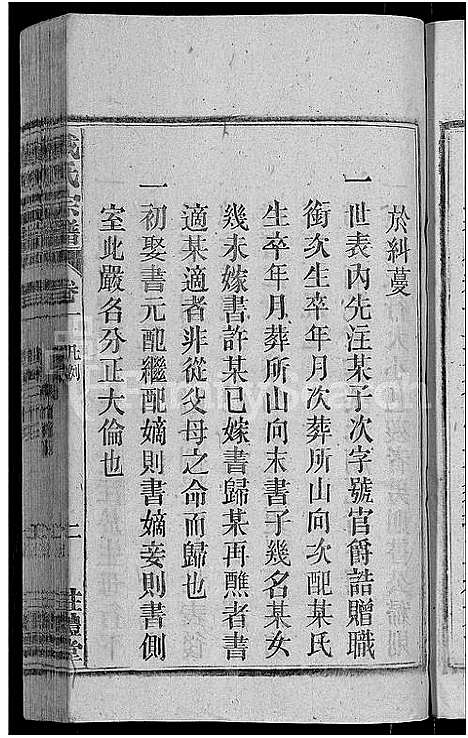 於糾蔓
一世表內先注某子次字號官爵誥贈職
銜次生卒年月次葬所山向次配某氏
生卒年月葬所山向末書子幾名某女
幾未嫁書許某已嫁書歸某再醮者書
適某適者非從父母之命而歸也
一初娶書元配繼配嫡則書嫡妾則書側
室此嚴名分正大倫也
氏宗譜 卷一 凡例 二